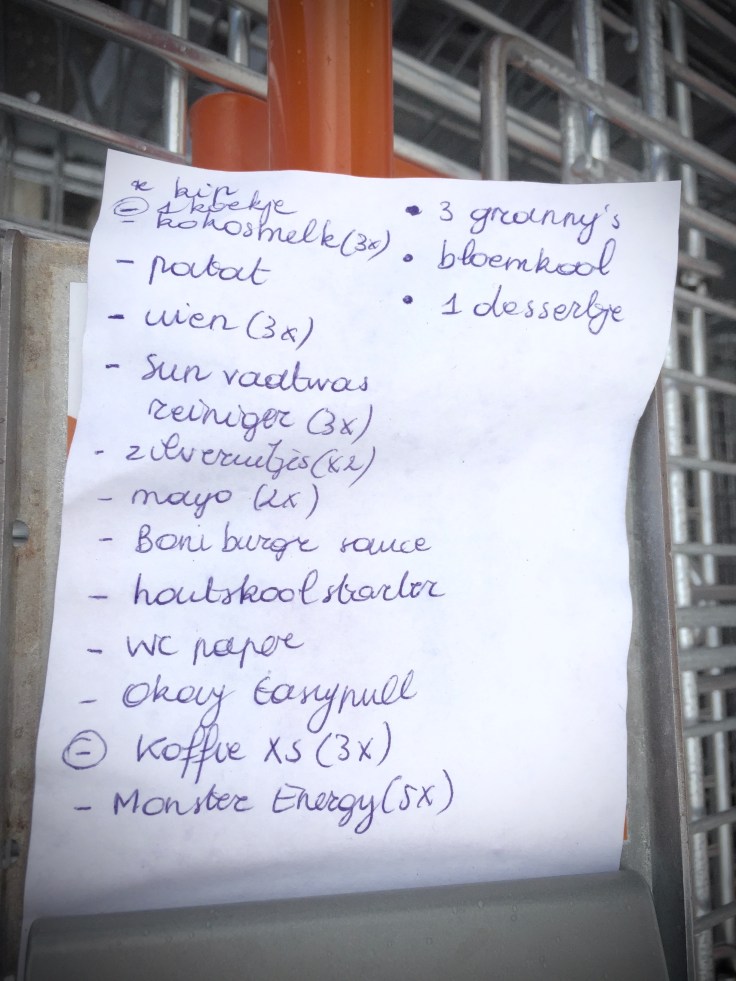 * kip
- 1 koekje
- kokosmelk (3x)
- patat
- uien (3x)
- Sun vaatwas
reiniger (3x)
- zilveruitjes (x2)
- mayo (2x)
- Boni burgr sauce
- houtskoolstarter
- WC paper
- Okay Easypull
- Koffie XS (3x)
- Monster Energy (5x)
• 3 granny's
• bloemkool
• 1 dessertje